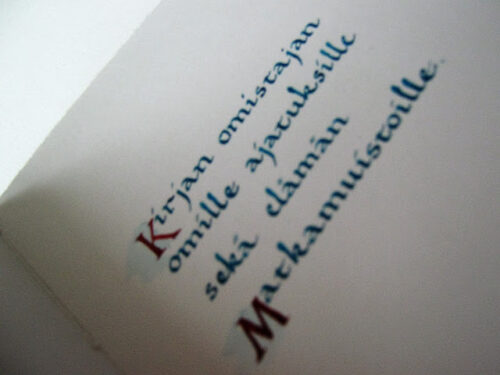 Kirjan omistajan
omille ajatuksille
sekä elämän
Matkamuistoille.